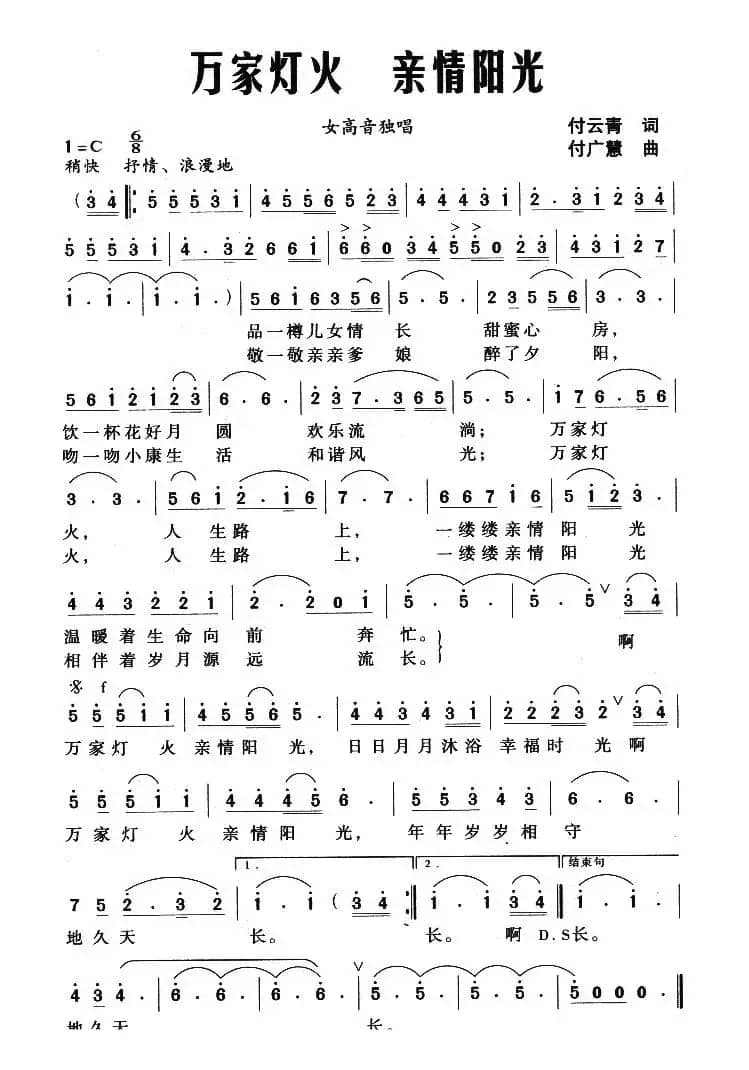 万家灯火 亲情阳光
女高音独唱
付云青 词
1=C 6/8
付广慧 曲
稍快 抒情、浪漫地
(3 4 ‖: 5 5 5 3 1 | 4 5 5 6 5 2 3 | 4 4 4 3 1 | 2 . 3 1 2 3 4 |
5 5 5 3 1 | 4 . 3 2 2 6 6 1 | 6 6 0 3 4 5 5 0 2 3 | 4 3 1 2 7 |
1 . 1 . | 1 . 1 . ) | 5 6 1 6 3 5 6 | 5 . 5 . | 2 3 5 5 6 | 3 . 3 . |
品一樽儿女情 长 甜蜜心 房,
敬一敬亲亲爹 娘 醉了夕 阳,
5 6 1 2 1 2 3 | 6 . 6 . | 2 3 7 . 3 6 5 | 5 . 5 . | 1 7 6 . 5 6 |
饮一杯花好月 圆 欢乐流 淌; 万家灯
吻一吻小康生 活 和谐风 光; 万家灯
3 . 3 . | 5 6 1 2 . 1 6 | 7 . 7 . | 6 6 7 1 6 | 5 1 2 3 |
火, 人 生路 上, 一缕缕亲情 阳 光
火, 人 生路 上, 一缕缕亲情 阳 光
4 4 3 2 2 1 | 2 . 2 0 1 | 5 . 5 . | 5 . 5 ∨ 3 4 |
温暖着生命向 前 奔 忙。
啊
相伴着岁月源 远 流 长。
𝄋 f
5 5 5 1 1 | 4 5 5 6 5 . | 4 4 3 4 3 1 | 2 2 2 3 2 ∨ 3 4 |
万家灯 火 亲情阳 光, 日日月月沐浴 幸福时 光啊
5 5 5 1 1 | 4 4 4 5 6 . | 5 5 3 4 3 | 6 . 6 . |
万家灯 火 亲情阳 光, 年年岁岁相 守
1. 2. 结束句
7 5 2 . 3 2 | 1 . 1 ( 3 4 :‖ 1 . 1 3 4 ‖ 1 . 1 . |
地久天 长。 长。 啊 D.S长。
4 3 4 . | 6 . 6 . | 6 . 6 . ∨ | 5 . 5 . | 5 . 5 . | 5 0 0 0 ‖
地久天 长。